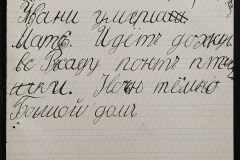 Увани умерла
Мать. Идётъ дожд
Во Саду поютъ пти
ички. Ночь тёмно
Большой домъ